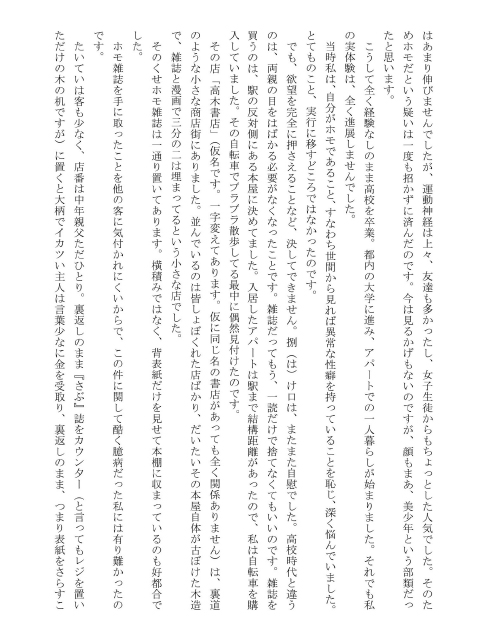 はあまり伸びませんでしたが、運動神経は上々、友達も多かったし、女子生徒からもちょっとした人気でした。そのた
めホモだという疑いは一度も招かずに済んだのです。今は見るかげもないのですが、顔もまあ、美少年という部類だっ
たと思います。
こうして全く経験なしのまま高校を卒業。都内の大学に進み、アパートでの一人暮らしが始まりました。それでも私
の実体験は、全く進展しませんでした。
当時私は、自分がホモであること、すなわち世間から見れば異常な性癖を持っていることを恥じ、深く悩んでいました。
とてものこと、実行に移すどころではなかったのです。
でも、欲望を完全に押さえることなど、決してできません。捌（は）け口は、またまた自慰でした。高校時代と違う
のは、両親の目をはばかる必要がなくなったことです。雑誌だってもう、一読だけで捨てなくてもいいのです。雑誌を
買うのは、駅の反対側にある本屋に決めてました。入居したアパートは駅まで結構距離があったので、私は自転車を購
入していました。その自転車でブラブラ散歩してる最中に偶然見付けたのです。
その店「高木書店」（仮名です。一字変えてあります。仮に同じ名の書店があっても全く関係ありません）は、裏道
のような小さな商店街にありました。並んでいるのは皆しょぼくれた店ばかり、だいたいその本屋自体が古ぼけた木造
で、雑誌と漫画で三分の二は埋まってるという小さな店でした。
そのくせホモ雑誌は一通り置いてあります。横積みではなく、背表紙だけを見せて本棚に収まっているのも好都合で
した。
ホモ雑誌を手に取ったことを他の客に気付かれにくいからで、この件に関して酷く臆病だった私には有り難かったの
です。
たいていは客も少なく、店番は中年親父ただひとり。裏返しのまま『さぶ』誌をカウンター（と言ってもレジを置い
ただけの木の机ですが）に置くと大柄でイカツい主人は言葉少なに金を受取り、裏返しのまま、つまり表紙をさらすこ